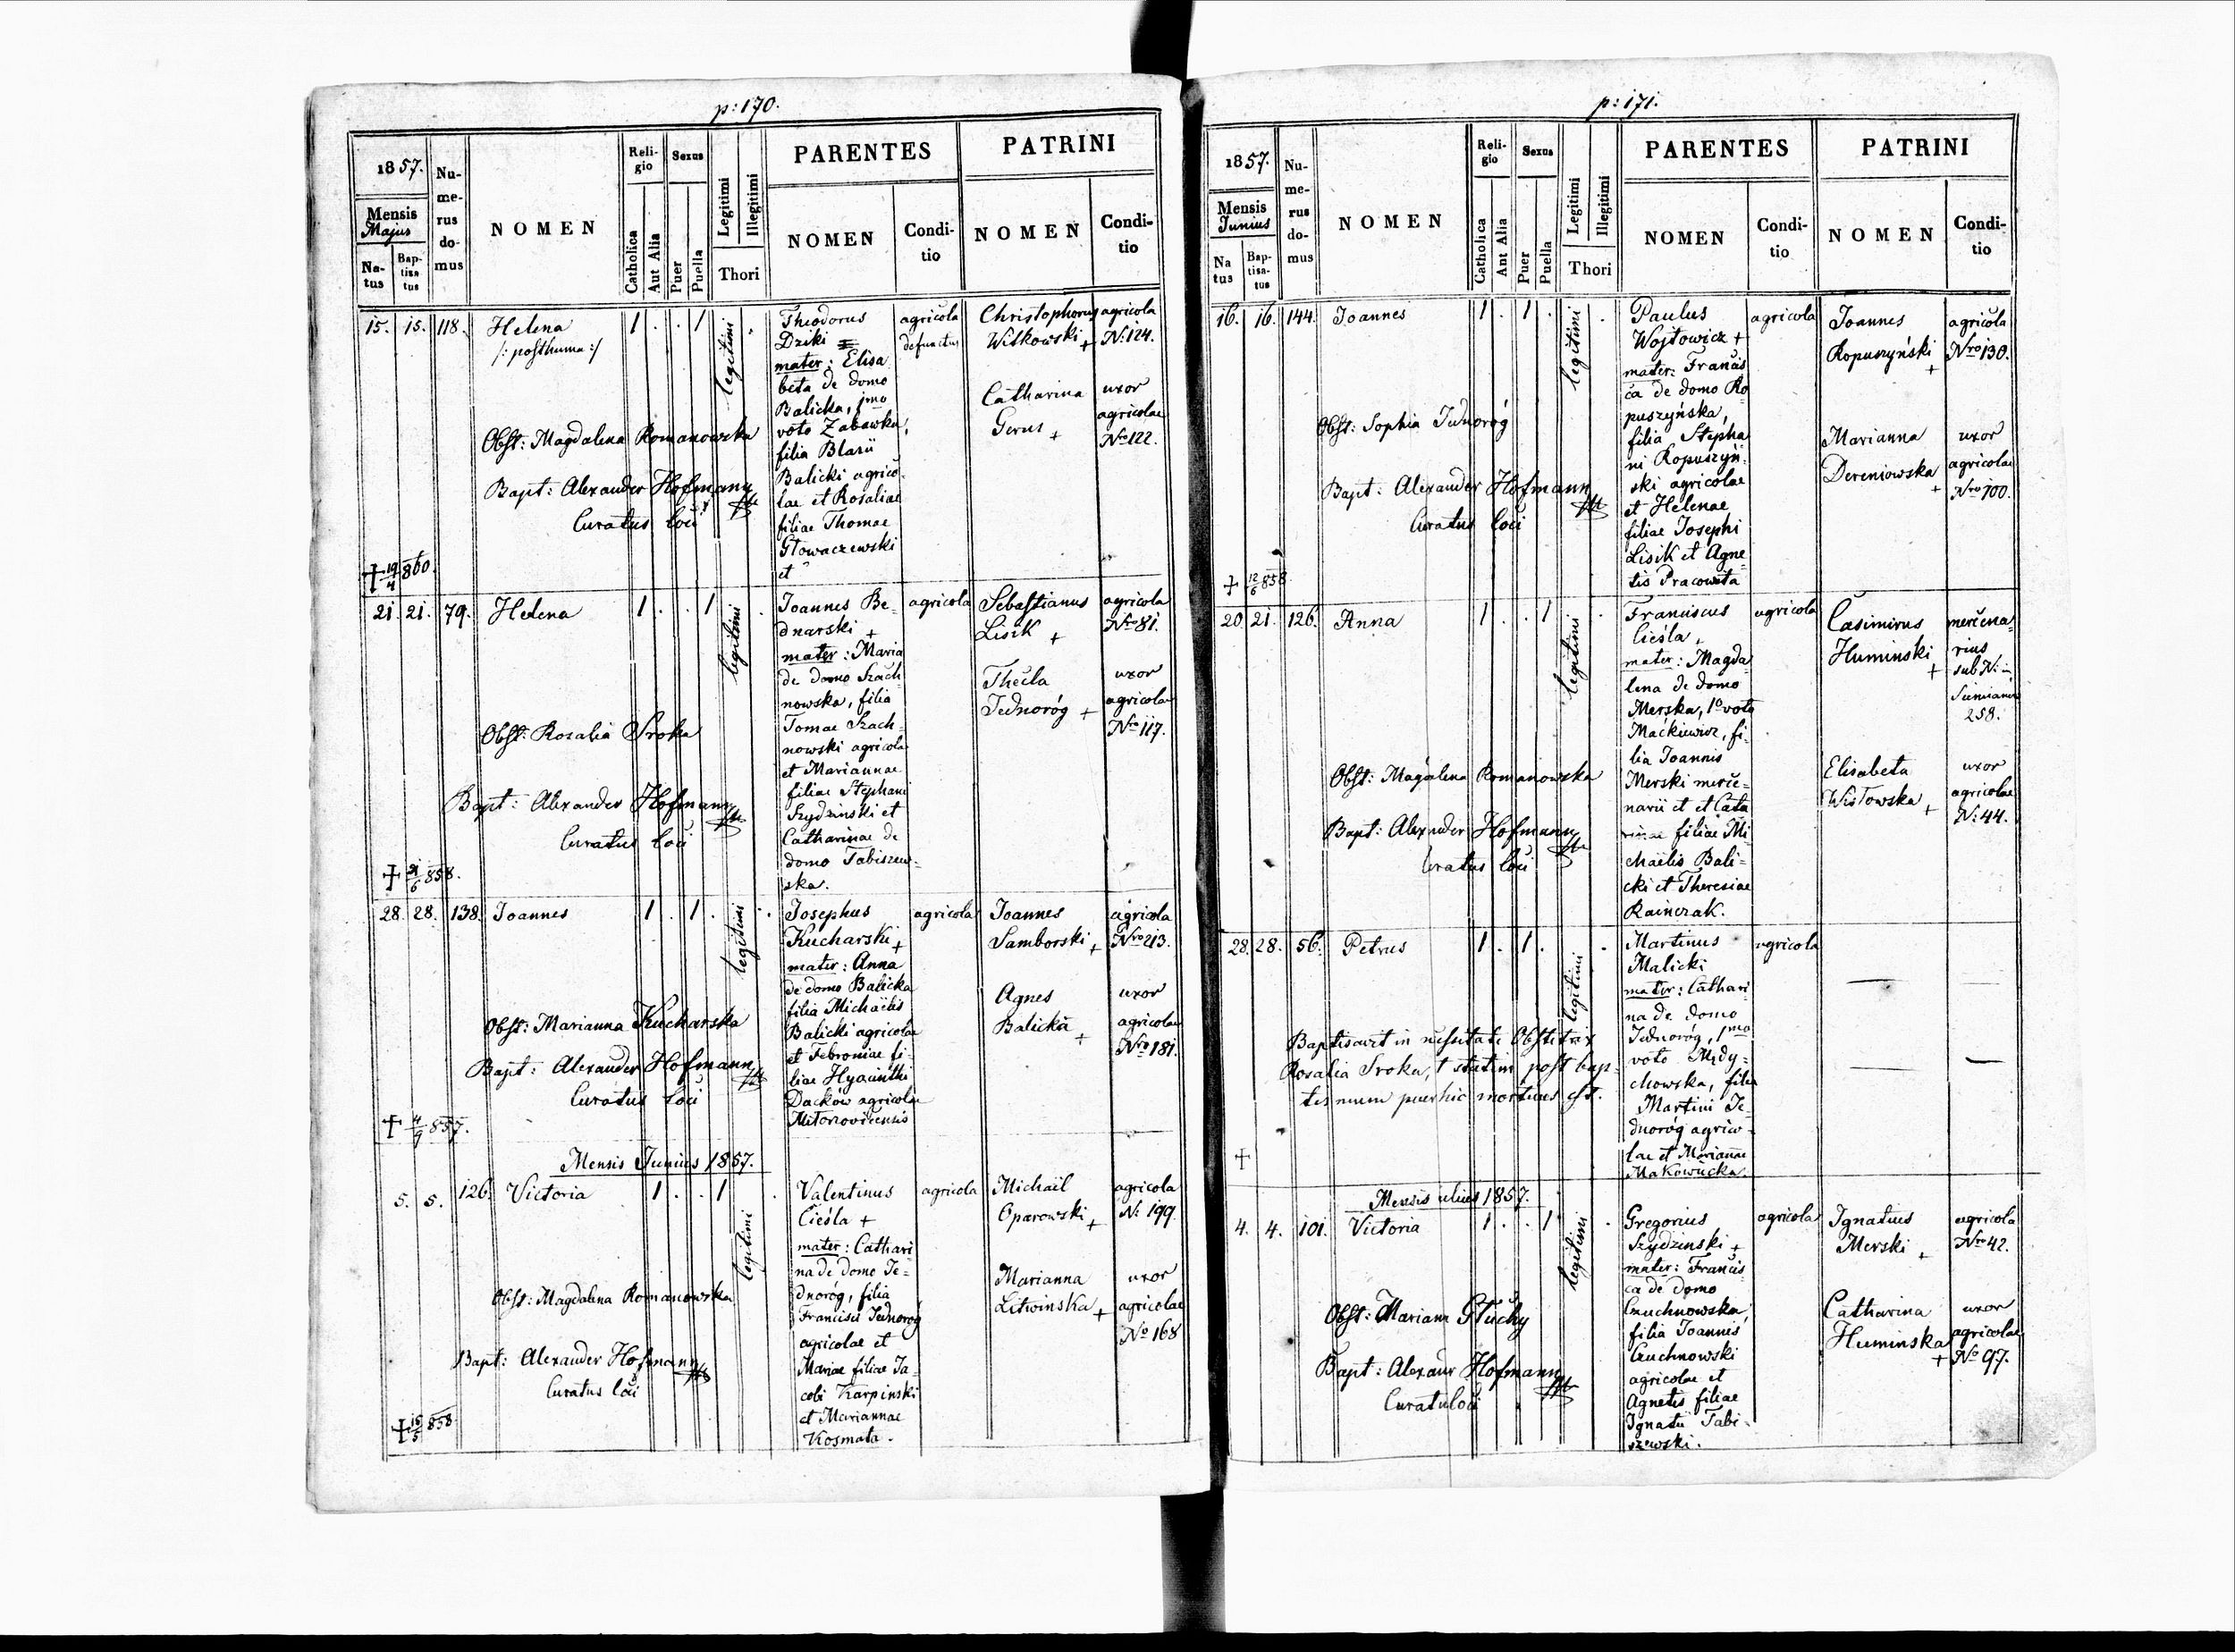 p: 170.
1857.
Mensis
Majus
Na-
tus
Bap-
tisa
tus
Nu-
me-
rus
do-
mus
NOMEN
Reli-
gio
Catholica
Aut Alia
Sexus
Puer
Puella
Legitimi
Illegitimi
Thori
PARENTES
NOMEN
Condi-
tio
PATRINI
NOMEN
Condi-
tio
15. 15. 118. Helena 1 . . 1 legitimi .
/: posthuma :/
Obst: Magdalena Romanowska
Bapt: Alexander Hofmann
Curatus loci
† 19/4 860.
Theodorus
Dziki
mater: Elisa
beta de domo
Balicka, 1mo
voto Zabawka,
filia Blasii
Balicki agrico
lae et Rosaliae
filiae Thomae
Głowaczewski
et
agricola
defunctus
Christophorus
Witkowski +
agricola
N: 124.
Catharina
Gerus +
uxor
agricolae
Nro 122.
21. 21. 79. Helena 1 . . 1 legitimi .
Obst: Rosalia Sroka
Bapt: Alexander Hofmann
Curatus loci
† 21/6 858.
Joannes Be-
dnarski +
mater: Maria
de domo Szach
nowska, filia
Tomae Szach-
nowski agricolae
et Mariannae
filiae Stephani
Szydzinski et
Catharinae de
domo Tabiszew-
ska.
agricola
Sebastianus
Lisik +
agricola
Nro 81.
Thecla
Jednoróg +
uxor
agricolae
Nro 117.
28. 28. 138. Joannes 1 . 1 . legitimi .
Obst: Marianna Kucharska
Bapt: Alexander Hofmann
Curatus loci
† 4/9 857.
Josephus
Kucharski +
mater: Anna
de domo Balicka
filia Michaëlis
Balicki agricolae
et Febroniae fi-
liae Hyacinthi
Dackow agricolae
agricola
Joannes
Samborski +
agricola
Nro 213.
Agnes
Balicka +
uxor
agricolae
Nro 181.
Mensis Junius 1857.
5. 5. 126. Victoria 1 . . 1 legitimi .
Obst: Magdalena Romanowska
Bapt: Alexander Hofmann
Curatus loci
† 15/5 858
Valentinus
Cieśla +
mater: Cathari
na de domo Je-
dnoróg, filia
Francisci Jednoróg
agricolae et
Mariae filiae Ja-
cobi Karpinski
et Mariannae
Kosmata.
agricola
Michaïl
Oparowski +
agricola
N: 199.
Marianna
Litwinska +
uxor
agricolae
No 168
p: 171.
1857.
Mensis
Junius
Na
tus
Bap-
tisa-
tus
Nu-
me-
rus
do-
mus
NOMEN
Reli-
gio
Catholica
Ant Alia
Sexus
Puer
Puella
Legitimi
Illegitimi
Thori
PARENTES
NOMEN
Condi-
tio
PATRINI
NOMEN
Condi-
tio
16. 16. 144. Joannes 1 . 1 . legitimi .
Obst: Sophia Jednoróg
Bapt: Alexander Hofmann
Curatus loci
† 12/6 858.
Paulus
Wojtowicz +
mater: Francis
ca de domo Ro
puszyńska,
filia Stepha
ni Ropuszyń-
ski agricolae
et Helenae
filiae Josephi
Lisik et Agne
tis Pracowita
agricola
Joannes
Ropuszyński +
agricola
Nro 130.
Marianna
Dereniowska +
uxor
agricolae
Nro 100.
20. 21. 126. Anna 1 . . 1 legitimi .
Obst: Magdalena Romanowska
Bapt: Alexander Hofmann
Curatus loci
Franciscus
Cieśla,
mater: Magda
lena de domo
Merska, 1o voto
Maćkiewicz, fi-
lia Joannis
Merski merce-
narii et et Cata
rinae filiae Mi
chaëlis Bali-
cki et Theresiae
Rainczak.
agricola
Casimirus
Huminski +
mercena-
rius
sub N: in
258.
Elisabeta
Wisłowska +
uxor
agricolae
N: 44.
28. 28. 56. Petrus 1 . 1 . legitimi .
Baptisavit in necessitate Obstetrix
Rosalia Sroka, † statim post bap-
tismum puer hic mortuus est.
†
Martinus
Malicki
mater: Cathari
na de domo
Jednoróg, 1mo
voto Mędy-
chowska, filia
Martini Je-
dnoróg agrico-
lae et Marianae
Makowucka.
agricola
Mensis ulius 1857.
4. 4. 101. Victoria 1 . . 1 legitimi .
Obst: Mariann Głuchy
Bapt: Alexanr Hofmann
Curatu loci
Gregorius
Szydzinski +
mater: Francis
ca de domo
Czuchnowska,
filia Joannis
Czuchnowski
agricolae et
Agnetis filiae
Ignatii Tabi-
szewski.
agricola
Ignatius
Merski +
agricola
Nro 42.
Catharina
Huminska +
uxor
agricolae
No 97.